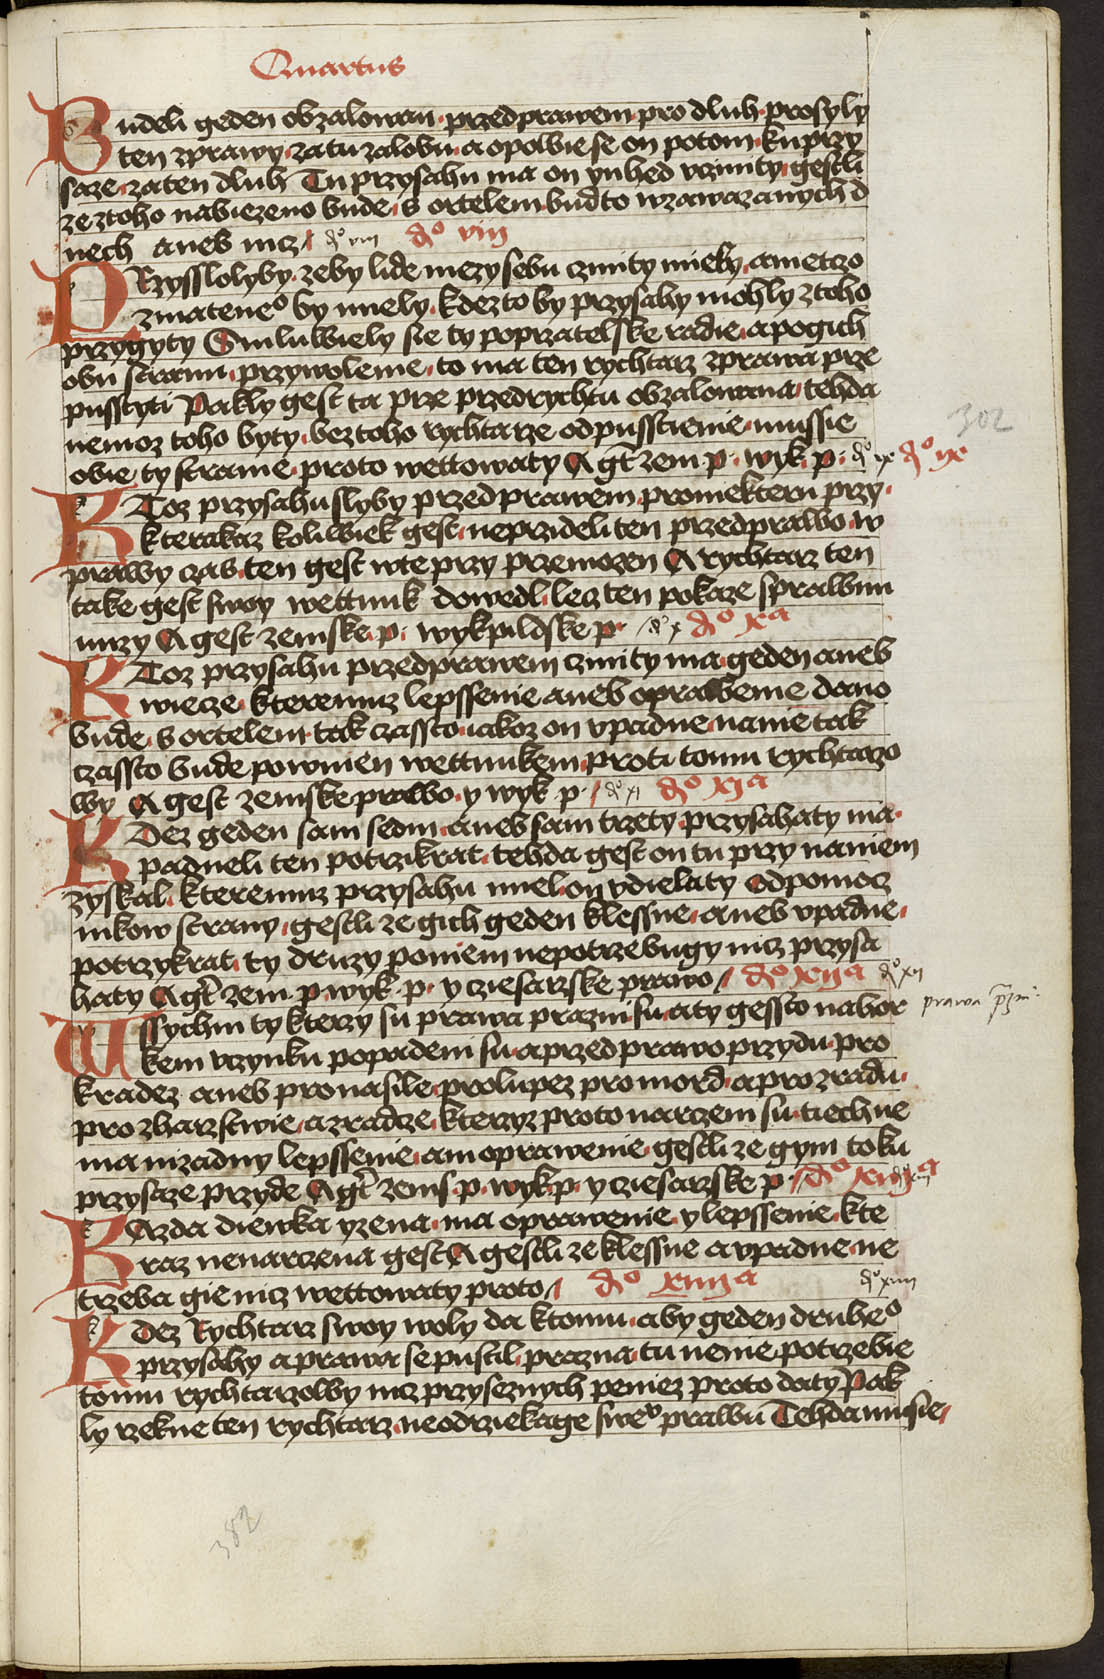 Quartus
Budeli geden obzalowan przed prawem pro dluh prosyly
ten zprawy za tu zalobu a opowie se on potom ku przy
saze za ten dluh Tu przysahu ma on ynhed vcziniti gestli
ze z toho nabiezeno bude s ortelem bud to w zawazanych d
nech aneb nicz / dᵒ viii dᵒ viii
PRzysslolyby zeby lide mezy sebu czinity mieli a metczo
zmateneᵒ by miely kdezto by przysahy mohly z toho
przygyty Smluwiely sie ty po przatelske radie a po gich
obu stranu przywolenie to ma ten rychtarz z prawa prze
pusstyti Pakly gest ta prze przed rychtu obzalowana tehda
nemoz toho byty bez toho rychtarze odpusstienie mussie
obie ty stranie proto wettowaty A gt zem p wyk p dᵒ ix dᵒ ix
302
KToz przysahu slyby przed prawem pro niekteru przy
kterakaz koliwiek gest neprzideli ten przed prawo w
prawy czas ten gest w te przy przemozen A rychtarz ten
take gest swoy wettunk dowedl lecz ten pokaze s prawnu
nuzy A gest zemske p wykpildske p / dᵒ x dᵒ xᵃ
KToz przysahu przed prawem czinity ma geden aneb
wiecze kteremuz lepssenie aneb oprawenie dano
bude s ortelem tak czassto iakoz on vpadne na nie tak
czassto bude powinen wettunkem proti tomu rychtarzo
wy A gest zemske prawo y wyk p / dᵒ xi dᵒ xiᵃ
KDez geden sam sedm aneb sam trzety przysahaty ma
padneli ten potrzikrat tehda gest on tu przy na niem
zyskal kteremuz przysahu miel on vdielaty Od pomocz
nikow strany gestli ze gich geden klessne aneb vpadne
potrzykrat ty druzy po niem nepotrzebugy nicz przysa
haty A gt zem p wyk p y cziesarske prawo / dᵒ xiiᵃ dᵒ xii
Wssychni ty kterzy su prawa prazni su a ty gessto na hor
prawa
kem vczynku popadeni su a przed prawo przydu pro
kradez aneb pro nasile pro lupez pro mord a pro zradu
pro zharzstwie a zradcze kteryz proto narczeni su tiech ne
ma nizadny lepssenie ani oprawenie gestli ze gym to ku
przysaze przyde A gt zems p wyk p y cziesarske p / dᵒ xiiiᵃ
KAzda diewka y zena ma oprawenie y lepssenie kte
raz nenarczena gest A gestli ze klessne a vpadne ne
trzeba gie nicz wettowaty proto / dᵒ xiiiiᵃ dᵒ xiiii
KDez Rychtarz swoy woly da k tomu aby geden druheᵒ
przysahy a prawa se pustil prazna tu nenie potrzebie
tomu rychtarzowy nicz przyseznych peniez proto daty Pak
ly rzekne ten rychtarz neodrziekage sweᵒ prawu Tehda musie
382